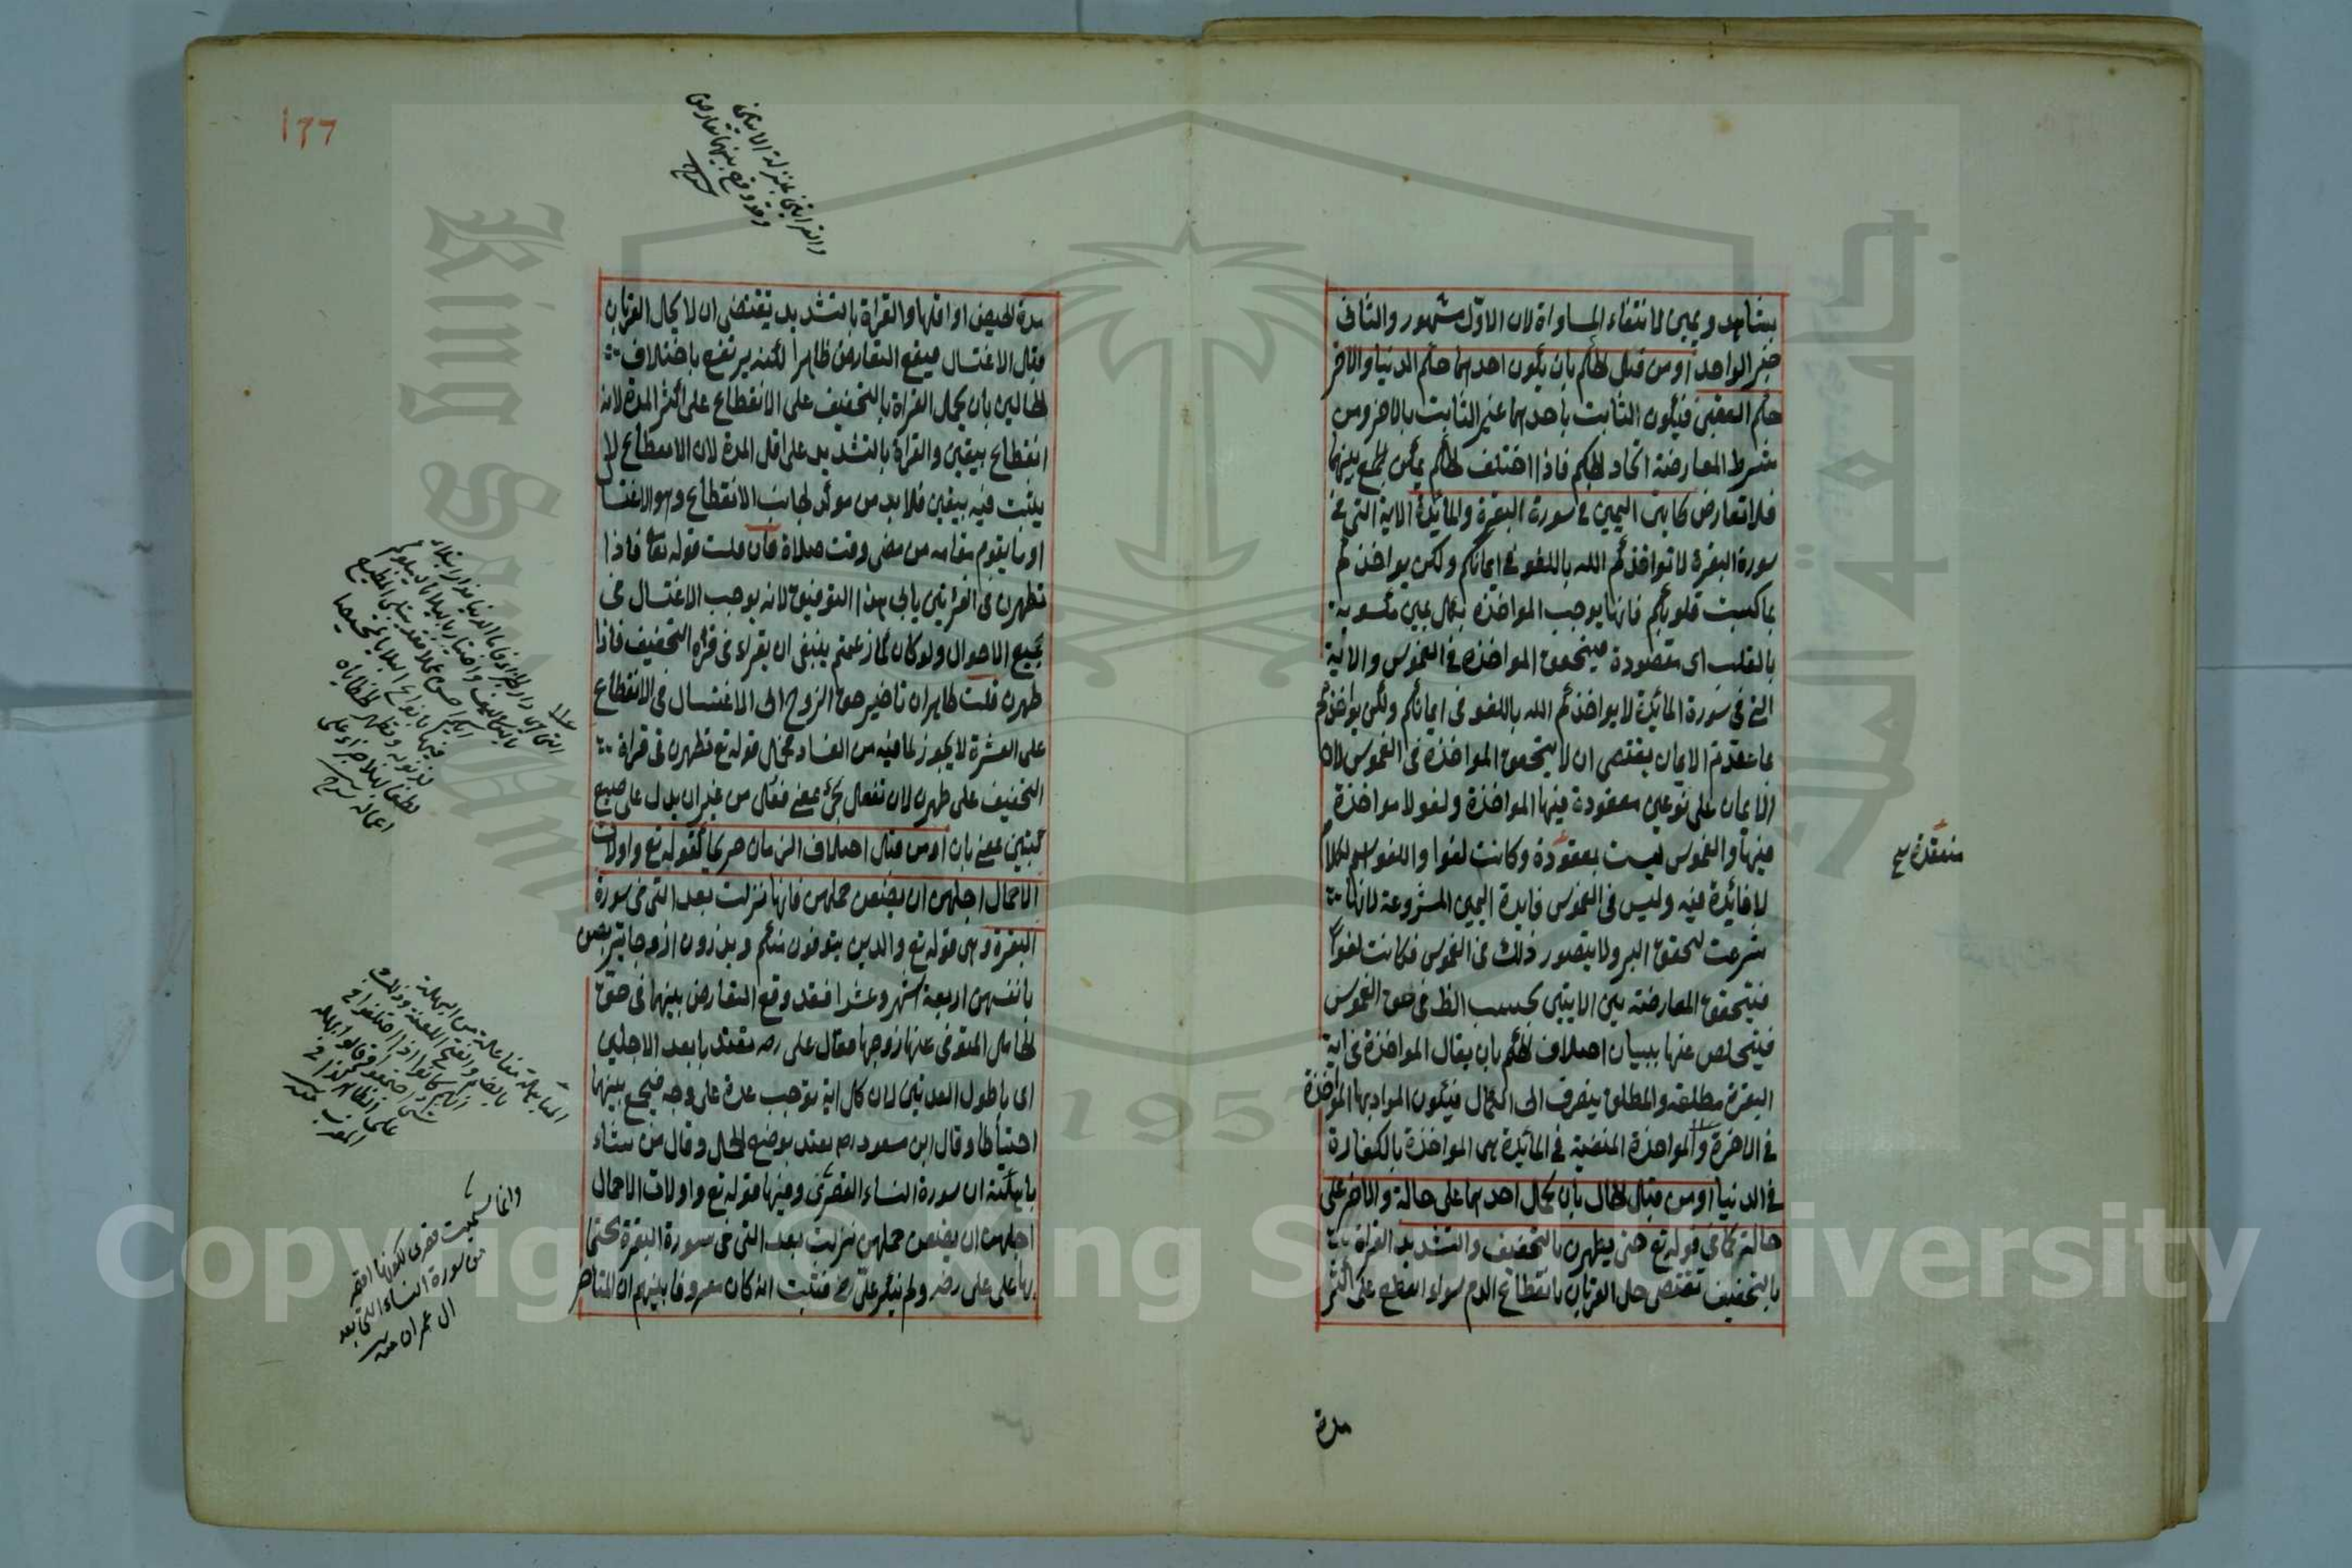 بشاهد ويمين لانتفاء المساواة لان الاول مشهور والثانى
خبر الواحد او من قبل الحكم بان يكون احدهما حكم الدنيا والاخر
حكم العقبى فيكون الثابت باحدهما غير الثابت بالاخر ومن
شرط المعارضة اتحاد الحكم فاذا اختلف الحكم يمكن الجمع بينهما
فلا تعارض كايتى اليمين فى سورة البقرة والمائدة الاية التى فى
سورة البقرة لا تواخذكم الله باللغو فى ايمانكم ولكن يواخذكم
بما كسبت قلوبكم فانها يوجب المواخذة بكل يمين مكسوبة
بالقلب اى مقصودة فيتحقق المواخذة فى الغموس والاية
التى فى سورة المائدة لا يواخذكم الله باللغو فى ايمانكم ولكن يواخذكم
بما عقدتم الايمان يقتضى ان لا يتحقق المواخذة فى الغموس لان
الايمان على نوعين معقودة فيها المواخذة ولغو لا مواخذة
فيها والغموس ليست بمعقودة وكانت لغوا واللغو اسم لكلام
لا فائدة فيه وليس فى الغموس فايدة اليمين المشروعة لانها
شرعت لتحقق البر ولا يتصور ذلك فى الغموس فكانت لغوا
فيتحقق المعارضة بين الايتين بحسب الظ فى حق الغموس
فيتخلص عنها ببيان اختلاف الحكم بان يقال المواخذة فى اية
البقرة مطلقة والمطلق ينصرف الى الكمال فيكون المراد بها المؤاخذة
فى الاخرة والمواخذة المنفية فى المائدة هى المواخذة بالكفارة
فى الدنيا او من قبل الحال بان يحمل احدهما على حالة والاخر على
حالة كما فى قوله تع حتى يطهرن بالتخفيف والتشديد القراة
بالتخفيف تقتضى حل القربان بانقطاع الدم سواء انقطع على اكثر
مدة
منعقدة
١٦٦
مدة الحيض او اقلها والقراة بالتشديد يقتضى ان لا يحل القربان
قبل الاغتسال فيقع التعارض ظاهرا لكنه يرتفع باختلاف
الحالين بان يحمل القراة بالتخفيف على الانقطاع على اكثر المدة لانه
انقطاع بيقين والقراة بالتشديد على اقل المدة لان الانقطاع لا
يثبت فيه بيقين فلا بد من موكد لجانب الانقطاع وهو الاغتسا
او ما يقوم مقامه من مضى وقت صلاة فان قلت قوله تعا فاذا
تطهرن فى القراتين يابى هذا التوفيق لانه يوجب الاغتسال فى
جميع الاحوال ولو كان كما زعمتم ينبغى ان يقراء فى قراة التخفيف فاذا
طهرن قلت لما بران تاخير حق الزوج الى الاغتسال فى الانقطاع
على العشرة لا يجوز لما فيه من الفساد يحمل قوله تع تطهرن فى قراة
التخفيف على طهرن لان تفعل يجئ بمعنى فعل من غير ان يدل على صنع
كتبين بمعنى بان او من قبل اختلاف الزمان صريحا كقوله تع واولات
الاحمال اجلهن ان يضعن حملهن فانها نزلت بعد التى فى سورة
البقرة وهى قوله تع والذين يتوفون منكم ويذرون ازواجا يتربصن
بانفسهن اربعة اشهر وعشرا فقد وقع التعارض بينهما فى حق
الحامل المتوفى عنها زوجها فقال على رضه تعتد بابعد الاجلين
اى باطول العدتين لان كل اية توجب عدة على وجه فيجمع بينهما
احتياطا وقال ابن مسعود رضه يعتد بوضع الحمل وقال من شاء
باهلته ان سورة النساء القصرى وفيها قوله تع واولات الاحمال
اجلهن ان يضعن حملهن نزلت بعد التى فى سورة البقرة محتجا
بها على على رضه ولم ينكر على رض فثبت انه كان معروفا بينهم ان المتاخر
والقراتين بمنزلة الايتين
وقد وقع بينهما تعارض
التى هى دار الجزاء فاما الدنيا فدار ابتلاء
فيها بانواع البلايا تمحيصا
لذنوبه وتطهير لخطاياه
المباهلة مفاعلة من البهلة
بالضم والفتح اللعنة وذلك
انهم كانوا اذا اختلفوا فى
شئ اجتمعوا وقالوا بهلة
على الظالم كذا فى
المغرب
وانما سميت قصرى لكونها اقصر
من سورة النساء التى بعد
ال عمران منه